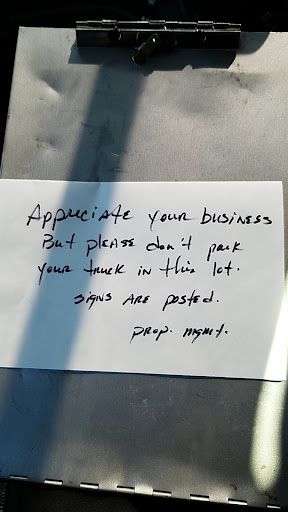 Appreciate your business
But please don't park
your truck in this lot.
signs are posted.
prop. mgmt.